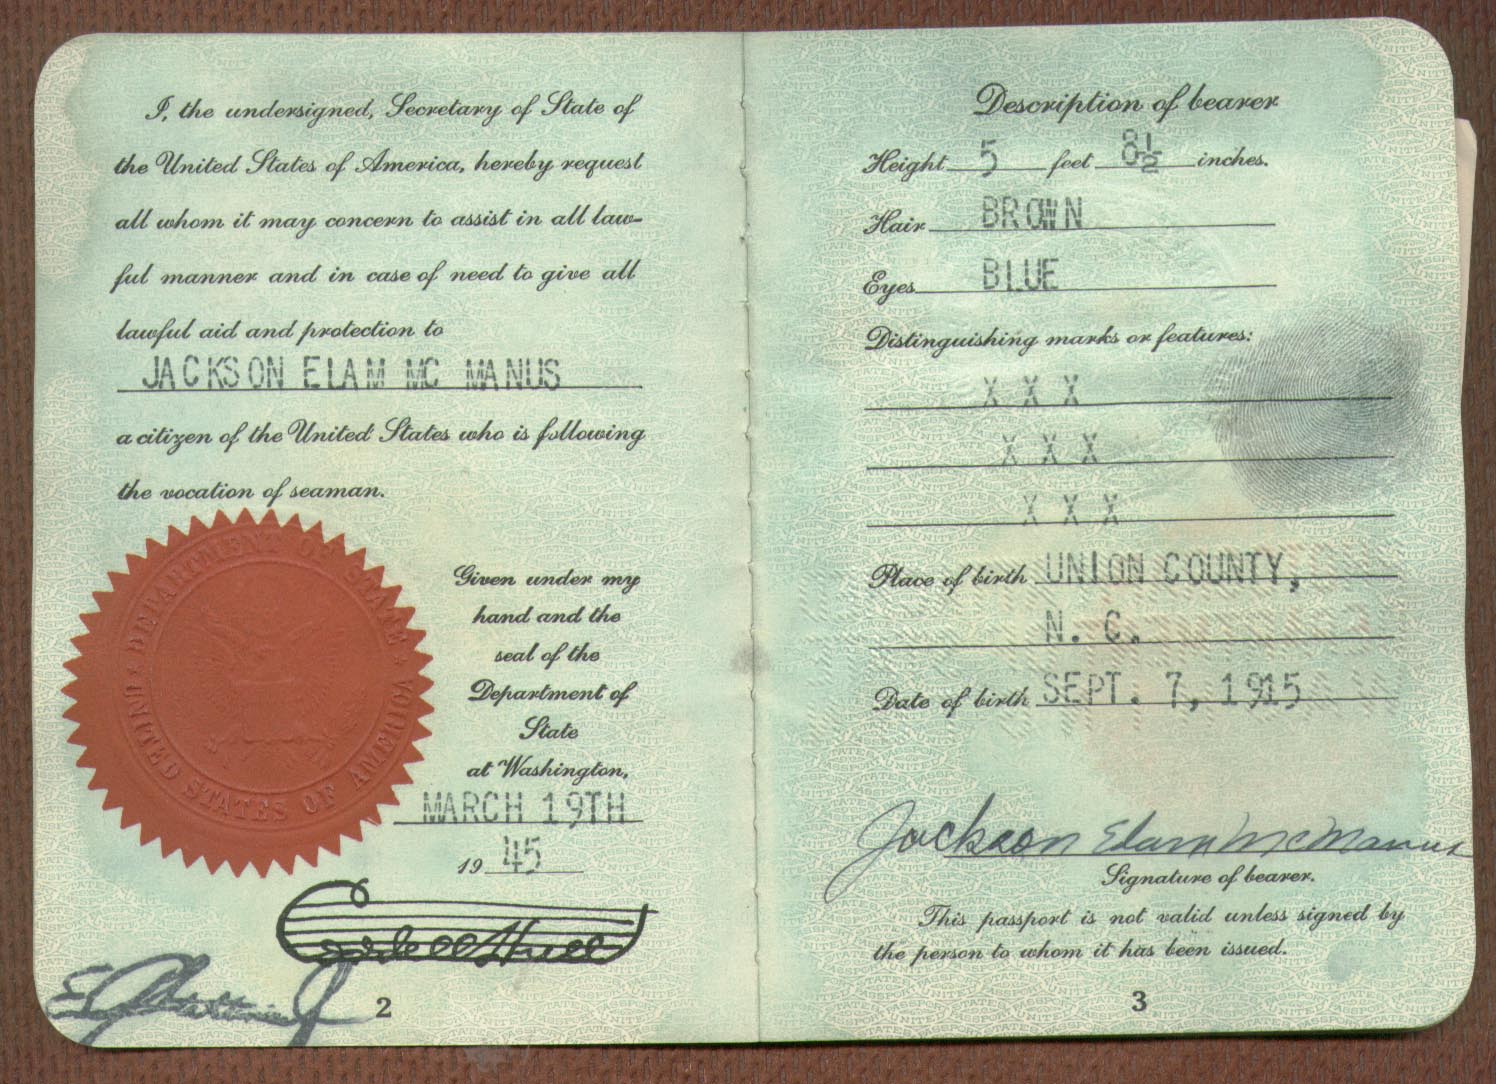 I, the undersigned, Secretary of State of
the United States of America, hereby request
all whom it may concern to assist in all law-
ful manner and in case of need to give all
lawful aid and protection to
JACKSON ELAM MC MANUS
a citizen of the United States who is following
the vocation of seaman.
DEPARTMENT OF STATE
UNITED STATES OF AMERICA
Given under my
hand and the
seal of the
Department of
State
at Washington,
MARCH 19TH
19 45
Cordell Hull
2
Description of bearer
Height 5 feet 8½ inches.
Hair BROWN
Eyes BLUE
Distinguishing marks or features:
X X X
X X X
X X X
Place of birth UNION COUNTY,
N. C.
Date of birth SEPT. 7, 1915
Jackson Elam McManus
Signature of bearer.
This passport is not valid unless signed by
the person to whom it has been issued.
3